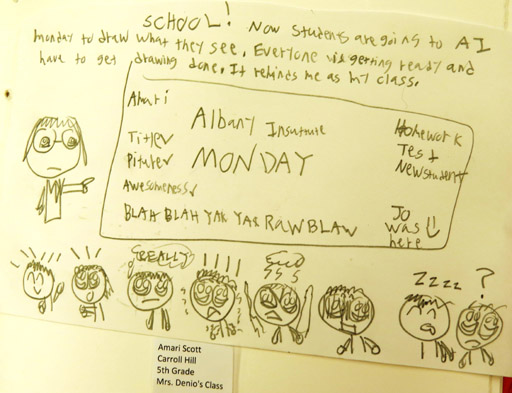 SCHOOL! Now students are going to AI
monday to draw what they see. Everyone is getting ready and
have to get drawing done. It reminds me as my class.
Amari
Albany Insutute
Homework
Title✓
Piture✓
MONDAY
Test
New student
Awesomeness✓
BLAH BLAH YAK YAK RAWBLAW
Jo
was
here
REALLY
! ! ! !
Zzzz
?
Amari Scott
Carroll Hill
5th Grade
Mrs. Denio's Class